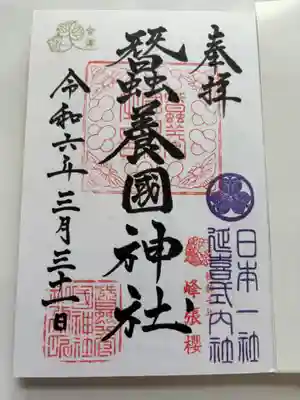 奉拝
日本一社
延喜式内社
峰張櫻
蠶養國神社
令和六年三月三十一日
会津